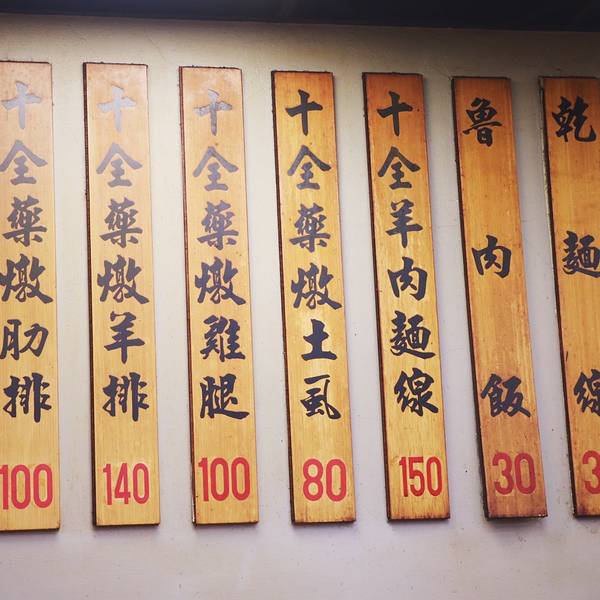 十全藥燉肋排
100
十全藥燉羊排
140
十全藥燉雞腿
100
十全藥燉土虱
80
十全羊肉麵線
150
魯肉飯
30
乾麵線